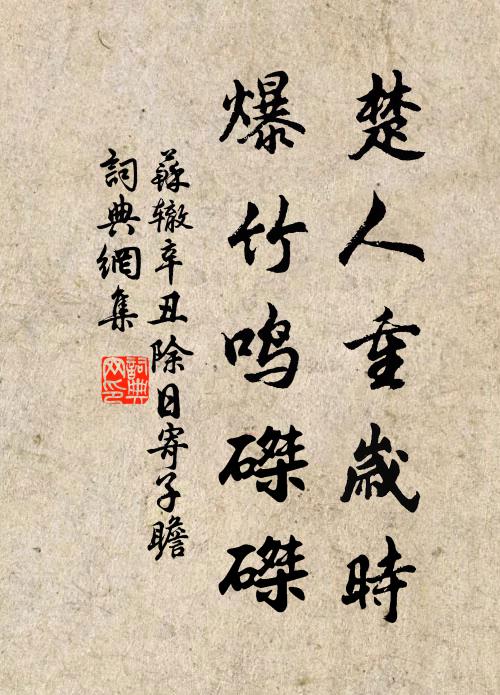 楚人重歲時
爆竹鸣磔磔
蘇辙辛丑除日寄子瞻
詞典網集
詞典
网印